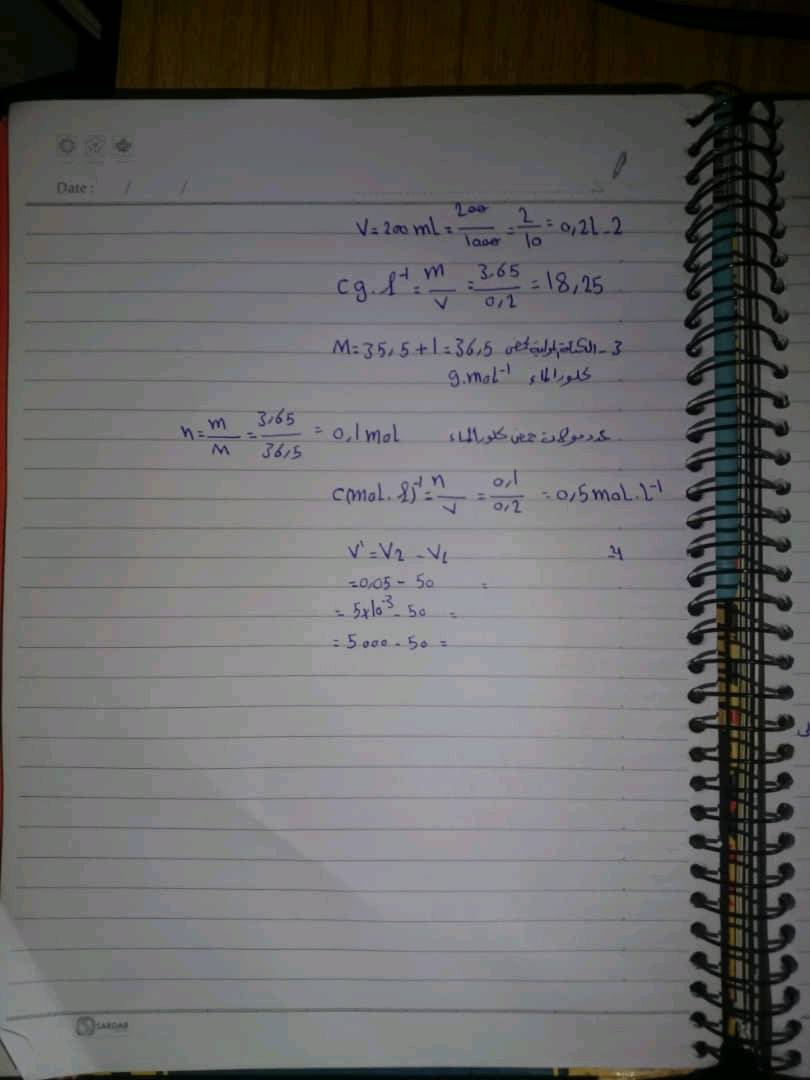 Date: / /
V = 200 ml = 200/1000 = 2/10 = 0,2 L -2
C g.l⁻¹ = m/v = 3.65/0,2 = 18,25
3- الكتلة المولية لحمض M = 35,5 + 1 = 36,5
كلور الماء g.mol⁻¹
عدد مولات حمض كلور الماء n = m/M = 3,65/36,5 = 0,1 mol
C(mol.l)⁻¹ = n/v = 0,1/0,2 = 0,5 mol.L⁻¹
4- V' = V2 - V1
= 0,05 - 50 =
= 5x10⁻³ - 50 =
= 5000 - 50 =
SARDAR